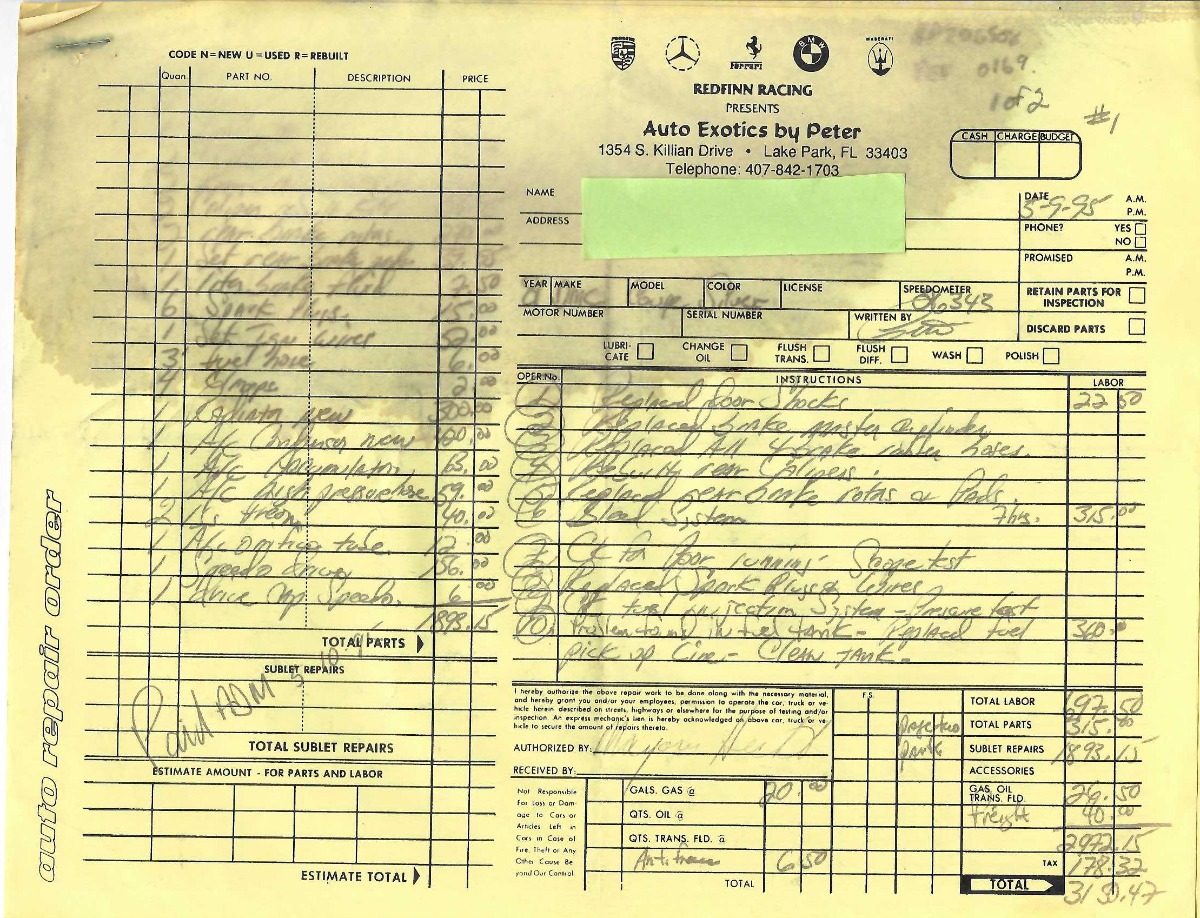 0169
1 of 2
#1
CODE N=NEW U=USED R=REBUILT
Quan. PART NO. DESCRIPTION PRICE
Ferrari
BMW
MASERATI
REDFINN RACING
PRESENTS
Auto Exotics by Peter
1354 S. Killian Drive • Lake Park, FL 33403
Telephone: 407-842-1703
CASH CHARGE BUDGET
NAME
ADDRESS
DATE 5-9-95 A.M.
P.M.
PHONE? YES
NO
PROMISED A.M.
P.M.
YEAR MAKE MODEL COLOR LICENSE SPEEDOMETER
DMC Coupe Silver 06343
RETAIN PARTS FOR
INSPECTION
MOTOR NUMBER SERIAL NUMBER WRITTEN BY
DISCARD PARTS
LUBRI-
CATE
CHANGE
OIL
FLUSH
TRANS.
FLUSH
DIFF.
WASH
POLISH
1 Set rear brake pads
1 liter brake fluid 7.50
6 Spark Plugs. 15.00
1 Set Ign wires 52.00
3' fuel hose 6.00
4 Clamps 2.00
Radiator new 300.00
1 A/C Condenser new
1 A/C Accumulator 63.00
1 A/C high pressure hose 59.00
2 lbs freon 40.00
1 A/C orifice tube. 12.00
1 Speedo drive 156.00
1 drive Speedo. 6.00
1893.15
TOTAL PARTS
SUBLET REPAIRS
Paid
TOTAL SUBLET REPAIRS
ESTIMATE AMOUNT - FOR PARTS AND LABOR
ESTIMATE TOTAL
auto repair order
OPER.No. INSTRUCTIONS LABOR
1 Replaced Door Shocks 22 50
2 Replaced brake master cylinder
3 Replaced All 4 brake rubber hoses.
4 Rebuilt rear Calipers.
5 Replaced rear brake rotors & Pads.
6 Bleed System 7 hrs. 315.00
7 CK for Poor running - Scope test
8 Replaced Spark Plugs & Wires
9 CK fuel injection System - Pressure test
10 Problem found in fuel tank - Replaced fuel 360.0
pick up Line - Clean tank -
I hereby authorize the above repair work to be done along with the necessary material,
and hereby grant you and/or your employees, permission to operate the car, truck or ve-
hicle herein described on streets, highways or elsewhere for the purpose of testing and/or
inspection. An express mechanic's lien is hereby acknowledged on above car, truck or ve-
hicle to secure the amount of repairs thereto.
AUTHORIZED BY:
RECEIVED BY:
F.S.
TOTAL LABOR
TOTAL PARTS 315.00
SUBLET REPAIRS 1893.15
ACCESSORIES
GAS, OIL
TRANS. FLD. 26.50
Freight 40.00
2972.15
TAX 178.32
TOTAL 3150.47
Not Responsible
For Loss or Dam-
age to Cars or
Articles Left in
Cars in Case of
Fire, Theft or Any
Other Cause Be
yond Our Control.
GALS. GAS @ 20.00
QTS. OIL @
QTS. TRANS. FLD. @
Antifreeze 6 50
TOTAL